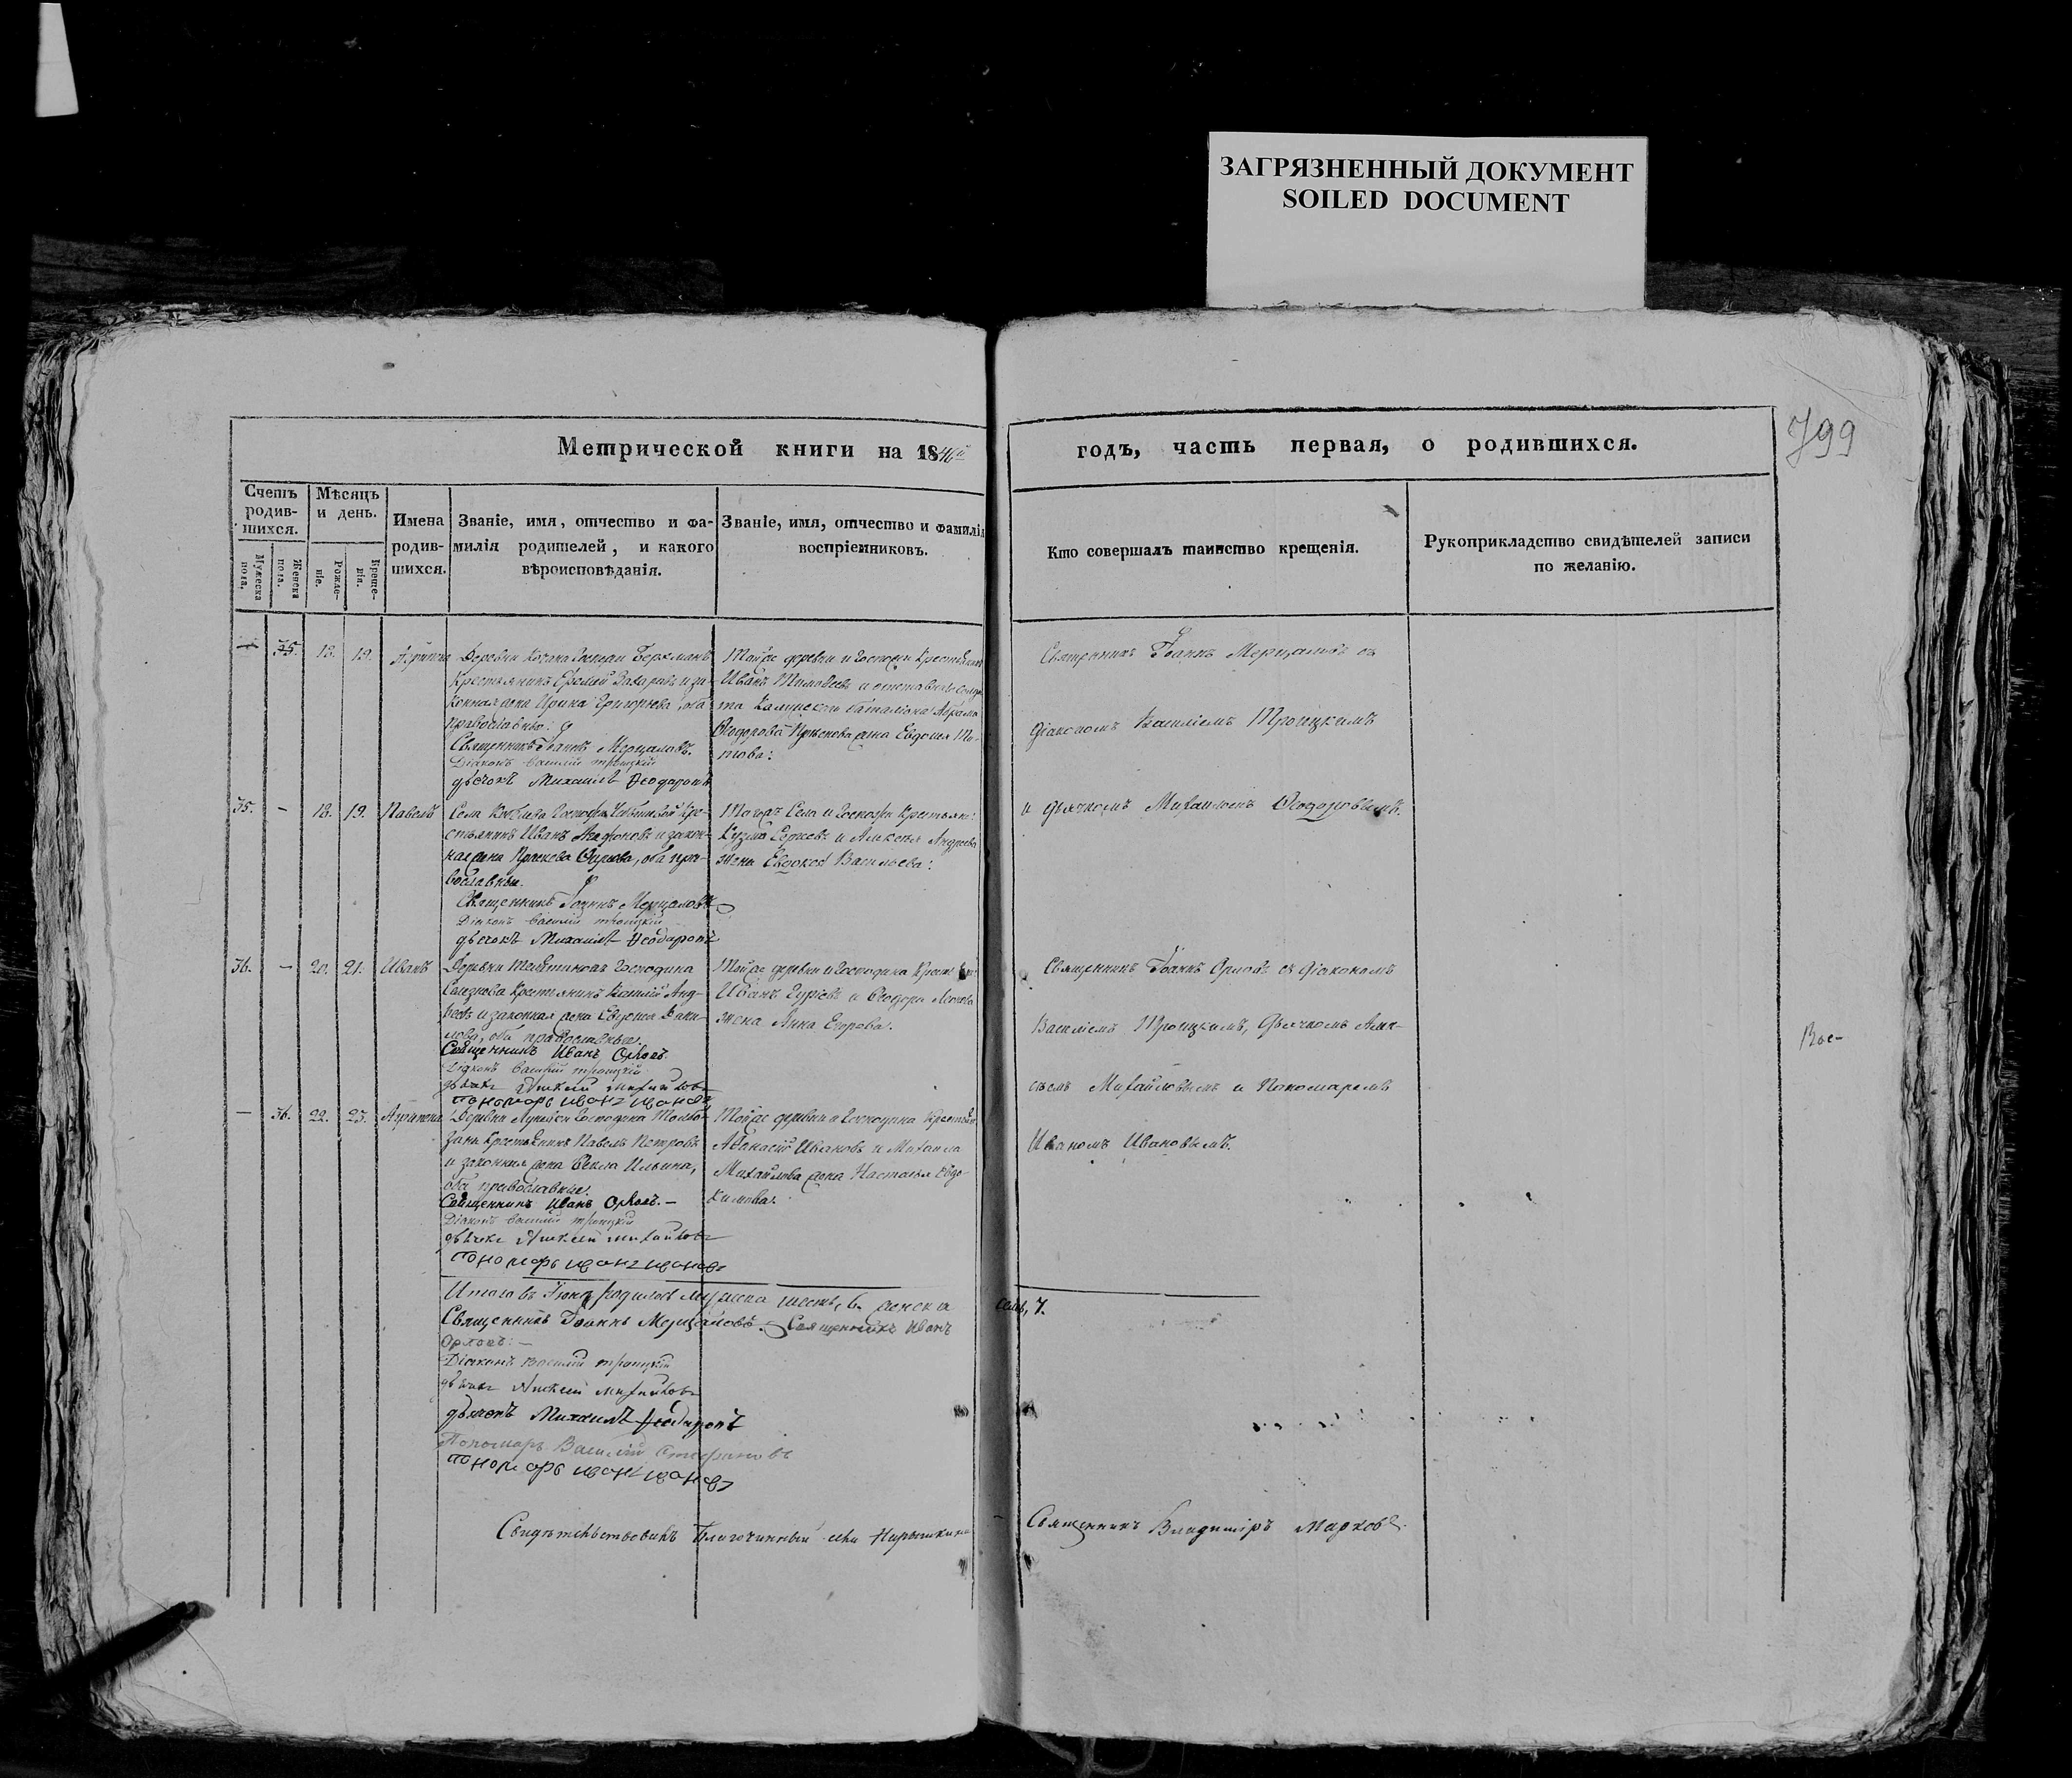 ЗАГРЯЗНЕННЫЙ ДОКУМЕНТ
SOILED DOCUMENT
799
Метрической книги на 1846й
годъ, часть первая, о родившихся.
Счетъ родив-шихся.
Мужеска пола.
Женска пола.
Мѣсяцъ и день.
Рожде-ніе.
Креще-нія.
Имена родив-шихся.
Званіе, имя, отчество и фа-
милія родителей, и какого
вѣроисповѣданія.
Званіе, имя, отчество и фамилія
воспріемниковъ.
Кто совершалъ таинство крещенія.
Рукоприкладство свидѣтелей записи
по желанію.
— 35. 18. 19. Агрипина
Деревни Госпожи
Крестьянинъ Еремѣй Захаровъ и за-
конная жена Ирина Григорьева, оба
православные.
Священникъ Іоаннъ Мерцаловъ.
Діаконъ Василій Троицкій
дьячокъ Михаилъ Ѳеодоровъ
Тойже деревни и Госпожи Крестьянинъ
Иванъ Тимоѳеевъ и отставнаго солда-
та баталіона Абрама
Ѳеодорова жена Евдокія Ти-
това.
Священникъ Іоаннъ Мерцаловъ съ
діакономъ Василіемъ Троицкимъ
и дьячкомъ Михаиломъ Ѳеодоровымъ.
35. — 18. 19. Павелъ
Села Госпожи Кре-
стьянинъ Иванъ и закон-
ная жена оба пра-
вославные.
Священникъ Іоаннъ Мерцаловъ
Діаконъ Василій Троицкій
дьячокъ Михаилъ Ѳеодоровъ
Тогожъ Села и Госпожи Крестьян:
Кузма Сергеевъ и Алексѣя Андреева
жена Евдокія Васильева.
36. — 20. 21. Иванъ
Деревни Господина
Селезнова Крестьянинъ Василій Анд-
реевъ и законная жена Евгенія Дани-
лова, оба православные.
Священникъ Иванъ Орловъ.
Діаконъ Василій Троицкій
дьячокъ Алексѣй Михайловъ
пономарь Иванъ Ивановъ
Тойже деревни и Господина Крестьян:
Иванъ Гурьевъ и Ѳеодора Леонова
жена Анна Егорова.
Священникъ Іоаннъ Орловъ съ діакономъ
Василіемъ Троицкимъ, дьячкомъ Алек-
сѣемъ Михайловымъ и Пономаремъ
Иваномъ Ивановымъ.
— 36. 22. 23. Агрипина
Деревни Господина
Крестьянинъ Павелъ Петровъ
и законная жена Ѳекла Ильина,
оба православные.
Священникъ Иванъ Орловъ. —
Діаконъ Василій Троицкій
дьячокъ Алексѣй Михайловъ
пономарь Иванъ Ивановъ
Тойже деревни и Господина Крестьян:
Аѳанасій Ивановъ и Михаила
Михайлова жена Настасья Евдо-
кимова.
Итого въ Іюнѣ родилось мужеска шесть, 6. женска семь, 7.
Священникъ Іоаннъ Мерцаловъ. Священникъ Иванъ
Орловъ: —
Діаконъ Василій Троицкій
дьячокъ Алексѣй Михайловъ
дьячокъ Михаилъ Ѳеодоровъ
Пономарь Василій Стефановъ
пономарь Иванъ Ивановъ
Свидѣтельствовалъ Благочинный села Нарышкина — Священникъ Владиміръ Марковъ.